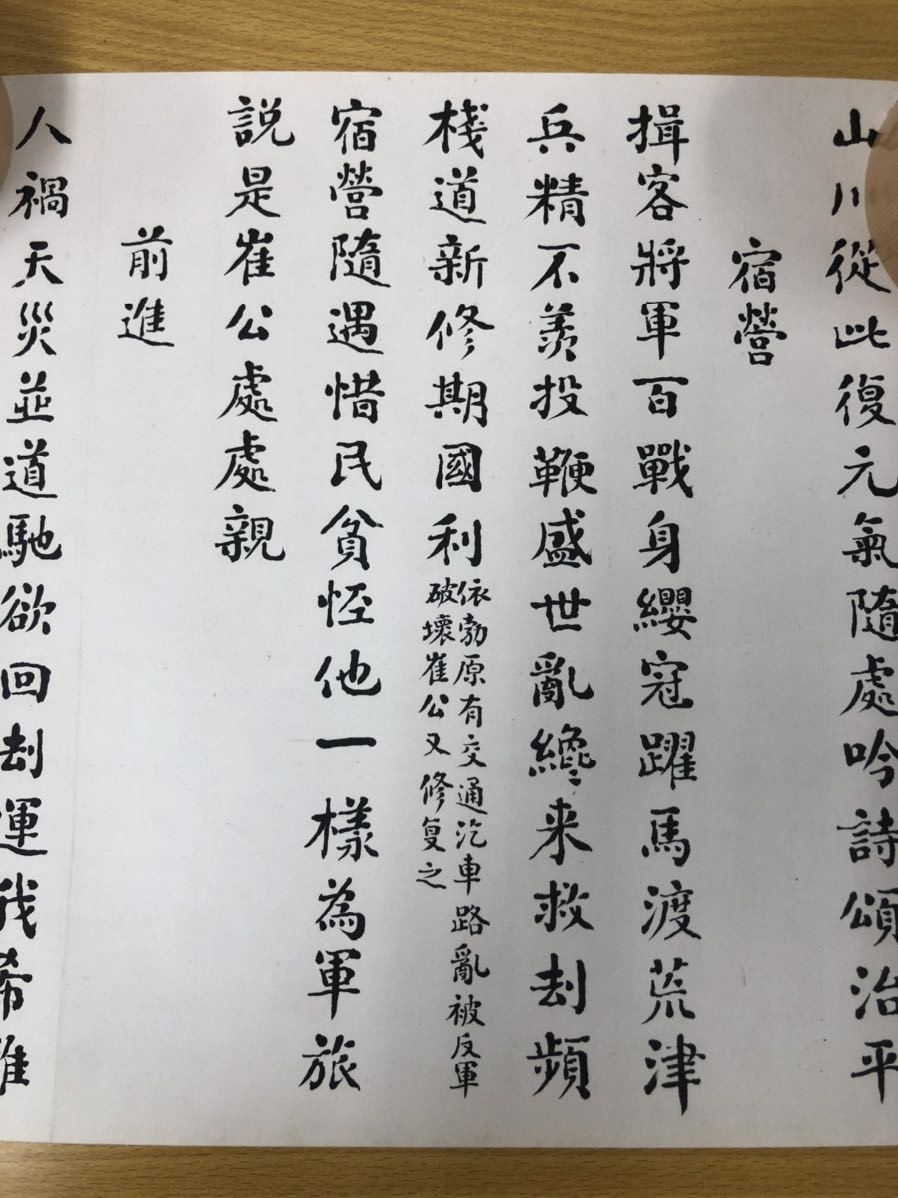 山川從此復元氣隨處吟詩頌治平
宿營
揖客將軍百戰身纓冠躍馬渡荒津
兵精不羨投鞭盛世亂纔來救刦頻
棧道新修期國利依勃原有交通汽車路亂被反軍
破壞崔公又修复之
宿營隨遇惜民貧恠他一樣為軍旅
説是崔公處處親
前進
人禍天災並道馳欲回刦運我希誰